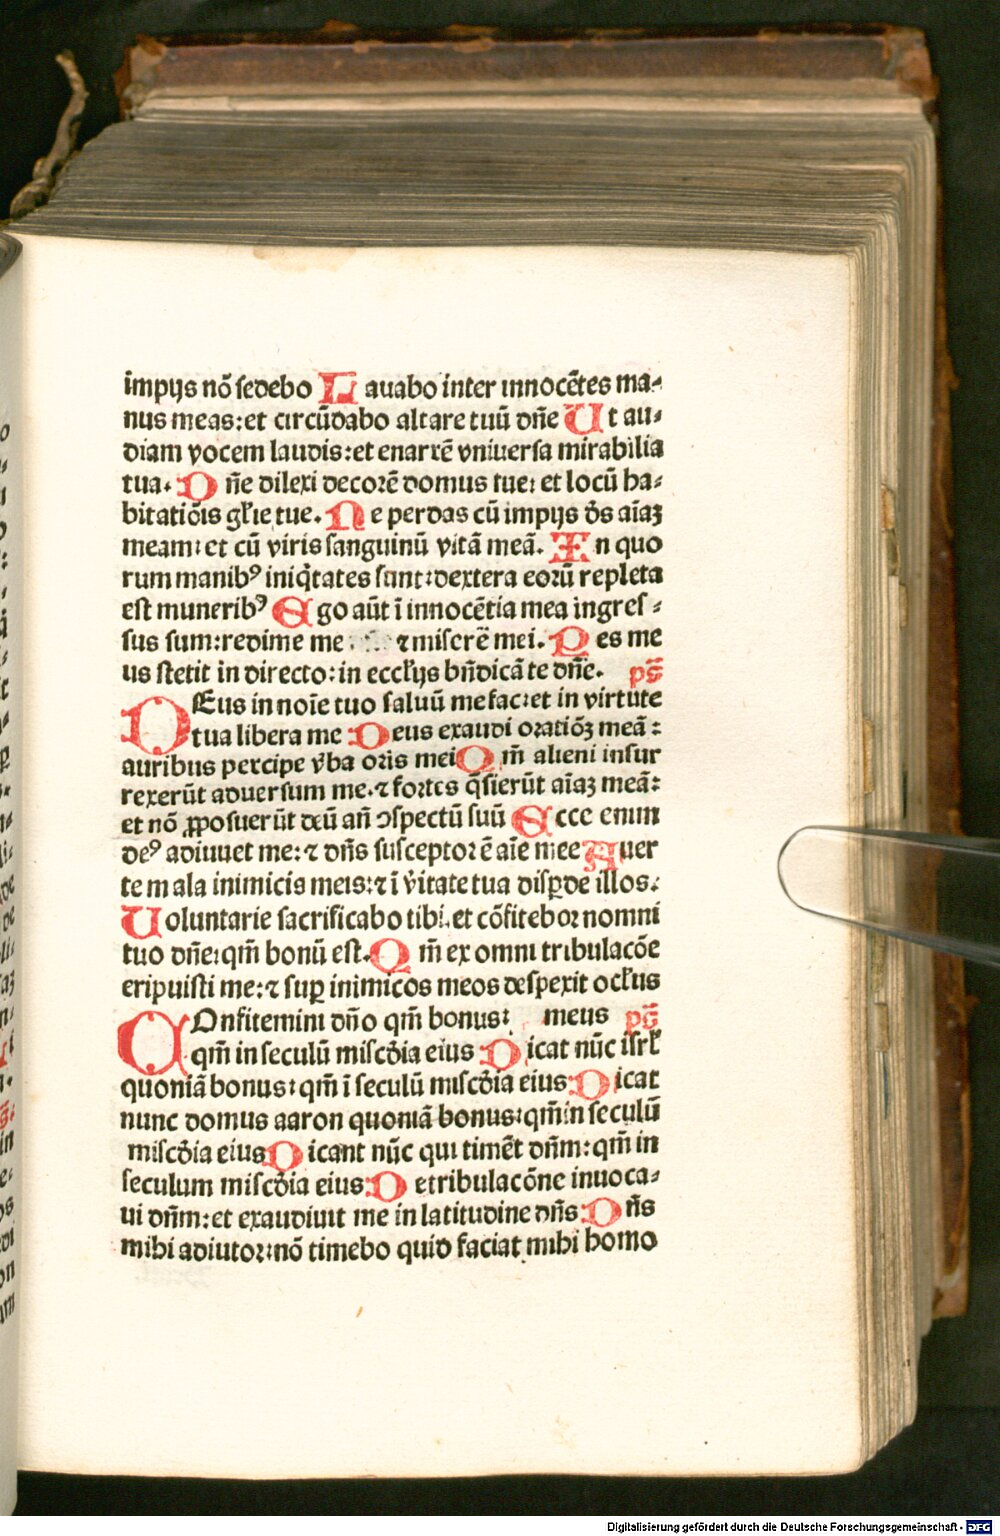 impijs nõ sedebo Lauabo inter innocẽtes ma⸗
nus meas: et circũdabo altare tuũ dñe Ut au⸗
diam vocem laudis: et enarrẽ vniuersa mirabilia
tua. Dñe dilexi decorẽ domus tue: et locũ ha⸗
bitatiõis glŕie tue. Ne perdas cũ impijs d̃s aĩaꝫ
meam: et cũ viris sanguinũ vitã meã. In quo
rum manibꝰ iniq̃tates sunt: dextera eorũ repleta
est muneribꝰ Ego aũt ĩ innocẽtia mea ingres⸗
sus sum: redime me ⁊ miserẽ mei. Pes me
us stetit in directo: in eccľijs bñdicã te dñe. pš
DEus in noĩe tuo saluũ me fac: et in virtute
tua libera me: Deus exaudi oratiõꝫ meã:
auribus percipe v̓ba oris mei Qm̃ alieni insur
rexerũt aduersum me. ⁊ fortes q̃sierũt aĩaꝫ meã:
et nõ ꝓposuerũt deũ añ ↄspectũ suũ Ecce enim
deꝰ adiuuet me: ⁊ dñs susceptor ẽ aĩe mee Auer
te mala inimicis meis: ⁊ ĩ v̓itate tua disꝑde illos.
Uoluntarie sacrificabo tibi. et cõfitebor nomni
tuo dñe: qm̃ bonũ est. Qm̃ ex omni tribulacõe
eripuisti me: ⁊ suꝑ inimicos meos despexit ocľus
COnfitemini dño qm̃ bonus: meus pš
qm̃ in seculũ miscd̓ia eius Dicat nũc isrľ
quoniã bonus: qm̃ ĩ seculũ miscd̓ia eius: Dicat
nunc domus aaron quoniã bonus: qm̃ in seculũ
miscd̓ia eius Dicant nũc qui timẽt dñm: qm̃ in
seculum miscd̓ia eius: De tribulacõne inuoca⸗
ui dñm: et exaudiuit me in latitudine dñs: Dñs
mihi adiutor: nõ timebo quid faciat mihi homo
Digitalisierung gefördert durch die Deutsche Forschungsgemeinschaft - DFG